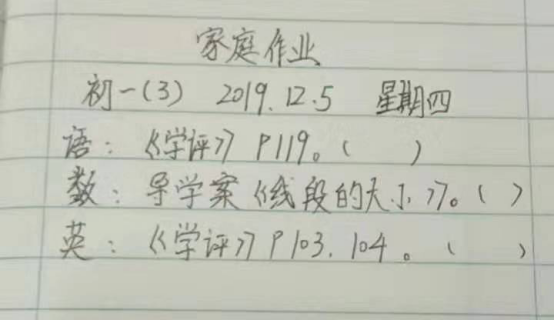 家庭作业
初一(3) 2019.12.5 星期四
语：《学评》P119。( )
数：导学案《线段的大小》。( )
英：《学评》P103.104。( )